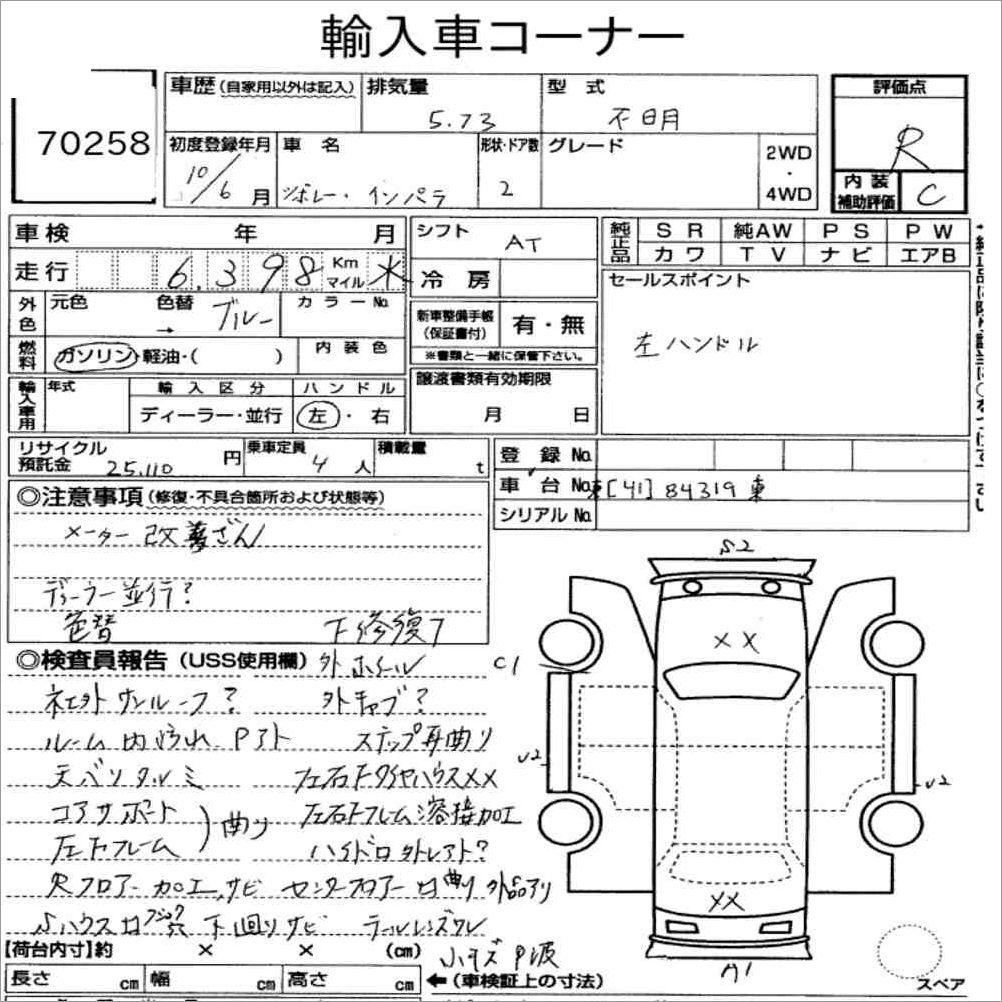 輸入車コーナー
70258
車歴(自家用以外は記入) 排気量 5.73 型式 不明
初度登録年月 10/6月 車名 シボレー・インパラ 形状・ドア数 2 グレード 2WD・4WD
評価点 R
内装補助評価 C
車検 年 月
走行 6.398 Km マイル
外色 元色 色替 → ブルー カラーNo.
燃料 ガソリン・軽油・( ) 内装色
輸入車用 年式 輸入区分 ディーラー・並行 ハンドル 左・右
シフト AT
冷房
新車整備手帳(保証書付) 有・無
※書類と一緒に保管下さい。
譲渡書類有効期限
月 日
純正品 SR 純AW PS PW
カワ TV ナビ エアB
セールスポイント
左ハンドル
リサイクル預託金 25.110円 乗車定員 4人 積載量 t
登録No.
車台No. [41]84319
シリアルNo.
◎注意事項(修復・不具合箇所および状態等)
メーター改
ディーラー並行?
色替
◎検査員報告(USS使用欄) 外ホイール
社外サンルーフ? 外キャブ?
ルーム内汚れ ステップ 曲り
天バリタルミ 左右Fタイヤハウス××
コアサポート 左右Fフレーム溶接加工
左Fフレーム )曲り ハイドロ
Rフロアー加工、サビ センターフロアー
下回りサビ テールレンズワレ
小キズ P波
S2
××
C1
U2
U2
××
A1
【荷台内寸】約 × × (cm)
長さ cm 幅 cm 高さ cm ←(車検証上の寸法)
スペア